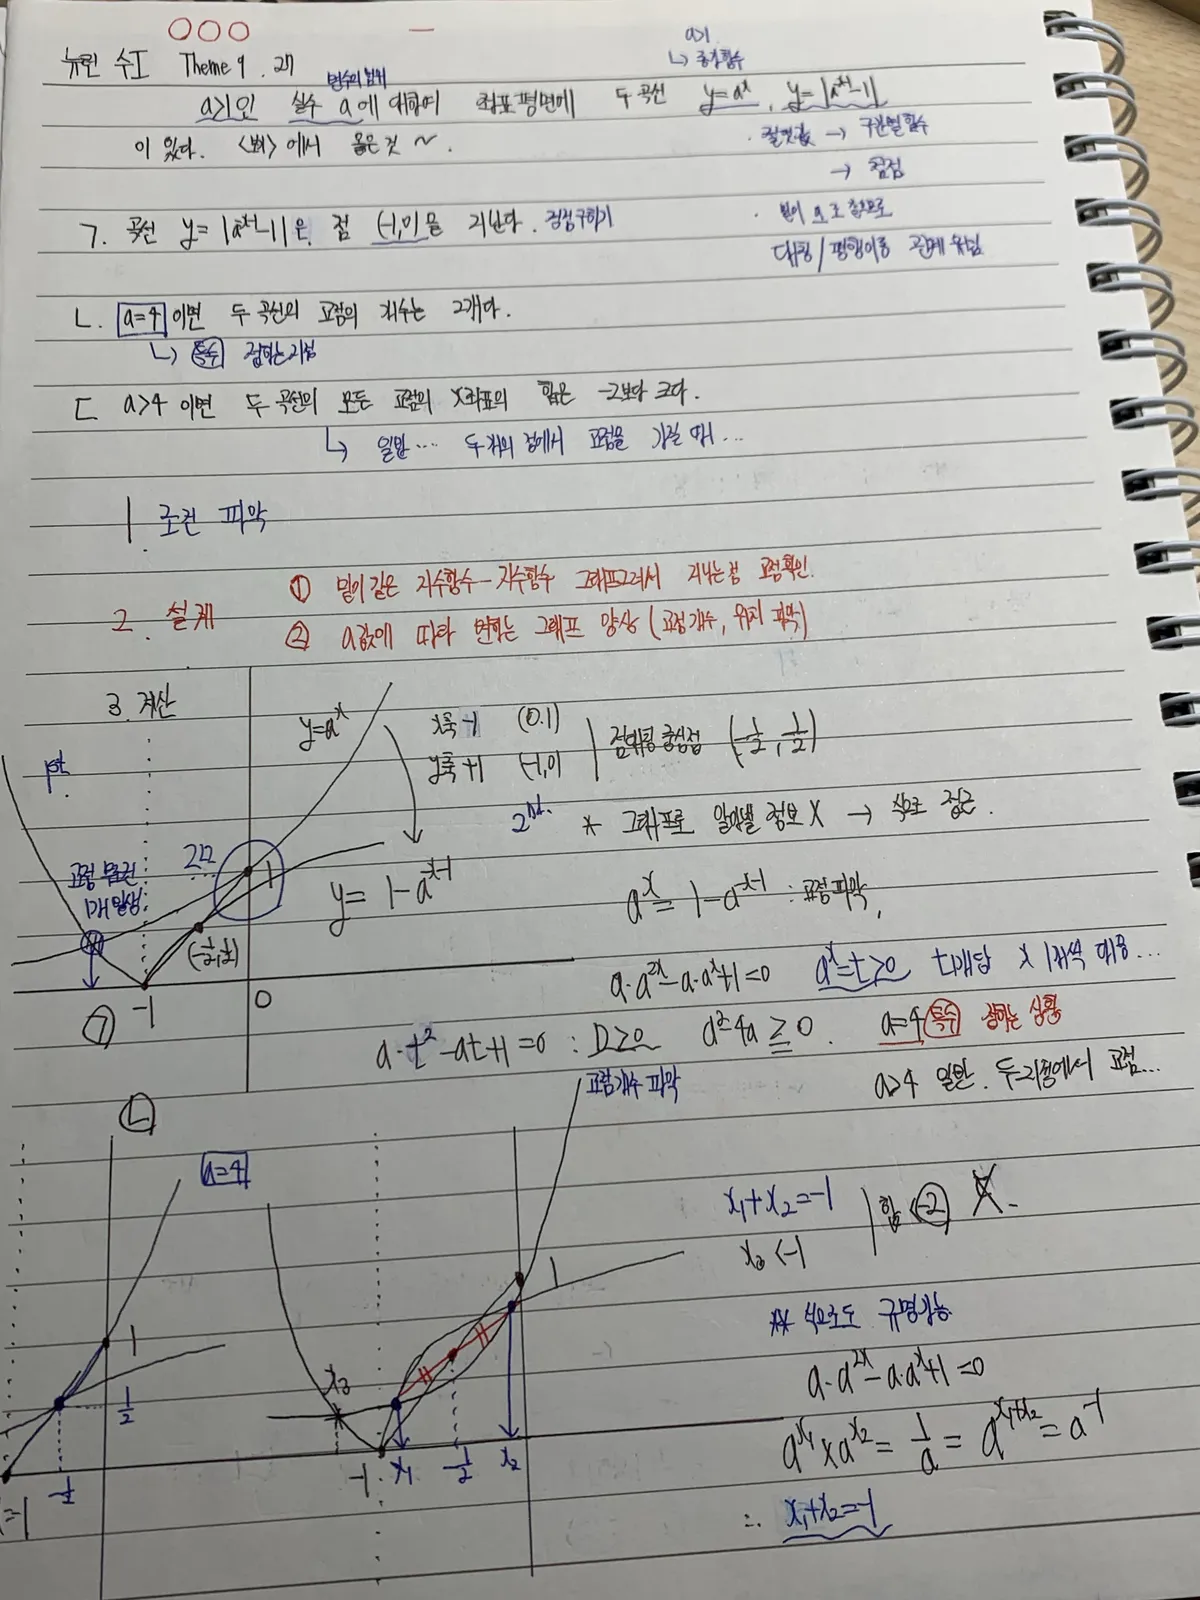 뉴런 수I Theme 9. 27
a>1
↳ 증가함수
변수의 범위
a>1인 실수 a에 대하여 좌표평면에 두 곡선 y=a^x, y=|a^{-x-1}-1|
이 있다. <보기>에서 옳은것 ~.
· 절댓값 → 구간별 함수
→ 첨점
· 밑이 a로 같으므로
대칭/평행이동 관계 유심
ㄱ. 곡선 y=|a^{-x-1}-1|은 점 (-1,0)을 지난다. 정점구하기
ㄴ. a=4 이면 두 곡선의 교점의 개수는 2개다.
↳ 특수 접하는지점
ㄷ a>4 이면 두 곡선의 모든 교점의 x좌표의 합은 -2보다 크다.
↳ 일반… 두개의 점에서 교점을 가질 때…
1. 조건 파악
2. 설계
① 밑이 같은 지수함수-지수함수 그래프그려서 지나는점 교점확인.
② a값에 따라 변하는 그래프 양상 (교점개수, 위치 파악)
3. 계산
1st.
y=a^x
x축 -1 (0,1)
y축 +1 (-1,0)
점대칭 중심점 (-1/2, 1/2)
2nd. * 그래프로 알아낼 정보 X → 식으로 접근.
교점 무조건
1개 발생
1
(-1/2, 1/2)
y= 1-a^{-x-1}
a^x = 1-a^{-x-1} : 교점파악,
-1
0
ㄱ
a·a^{2x}-a·a^x+1=0 a^x=t>0 t1개당 x 1개씩 대응…
a·t²-at+1=0 : D≥0 a²-4a≥0. a=4 특수 접하는 상황
교점개수 파악
a>4 일반. 두지점에서 교점…
ㄴ
a=4
1
1/2
-1/2
x=-1
x₃
1
-1
x₁
-1/2
x₂
x₁+x₂=-1
x₃<-1
합<-2 X.
** 식으로도 규명가능
a·a^{2x}-a·a^x+1=0
a^{x₁}×a^{x₂}=1/a=a^{x₁+x₂}=a^{-1}
∴ x₁+x₂=-1